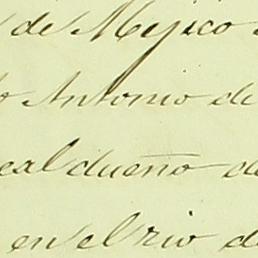 de Mejico
Antonio de
real dueño de
en el rio de